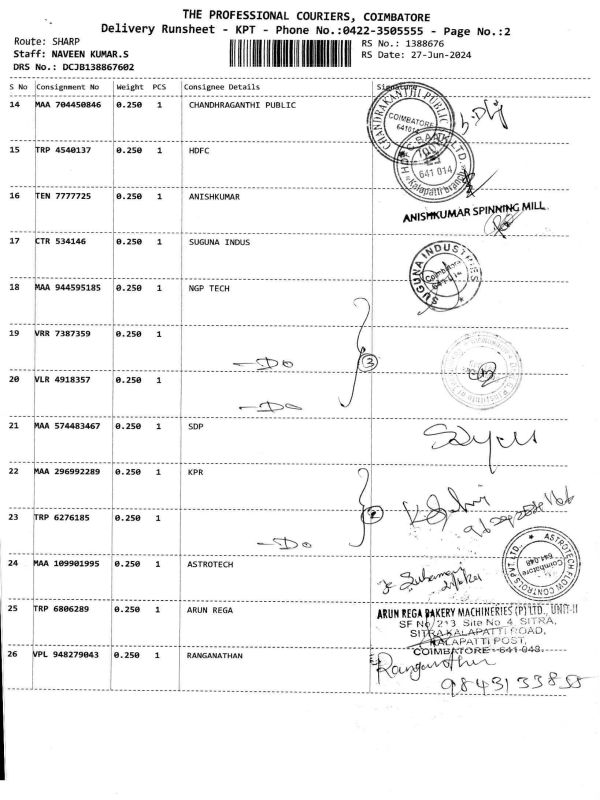 THE PROFESSIONAL COURIERS, COIMBATORE
Delivery Runsheet - KPT - Phone No.:0422-3505555 - Page No.:2
Route: SHARP
RS No.: 1388676
Staff: NAVEEN KUMAR.S
RS Date: 27-Jun-2024
DRS No.: DCJB138867602
S No Consignment No Weight PCS Consignee Details Signature
14 MAA 704450846 0.250 1 CHANDHRAGANTHI PUBLIC
CHANDRAKANTHI PUBLIC
COIMBATORE
641014
15 TRP 4540137 0.250 1 HDFC
HDFC BANK LTD.
641 014
Kalapatti branch
16 TEN 7777725 0.250 1 ANISHKUMAR
ANISHKUMAR SPINNING MILL
17 CTR 534146 0.250 1 SUGUNA INDUS
SUGUNA INDUSTRIES
Coimbatore
18 MAA 944595185 0.250 1 NGP TECH
19 VRR 7387359 0.250 1
-Do
3
20 VLR 4918357 0.250 1
-Do
21 MAA 574483467 0.250 1 SDP
22 MAA 296992289 0.250 1 KPR
23 TRP 6276185 0.250 1
-Do
24 MAA 109901995 0.250 1 ASTROTECH
ASTROTECH FLOW CONTROLS PVT. LTD.,
Coimbatore
641-048
25 TRP 6806289 0.250 1 ARUN REGA
ARUN REGA BAKERY MACHINERIES (P) LTD., UNIT-II
SF No/213 Site No 4, SITRA,
SITRA KALAPATTI ROAD,
KALAPATTI POST,
COIMBATORE - 641 048.
26 VPL 948279043 0.250 1 RANGANATHAN
Ranganathan
9843133855